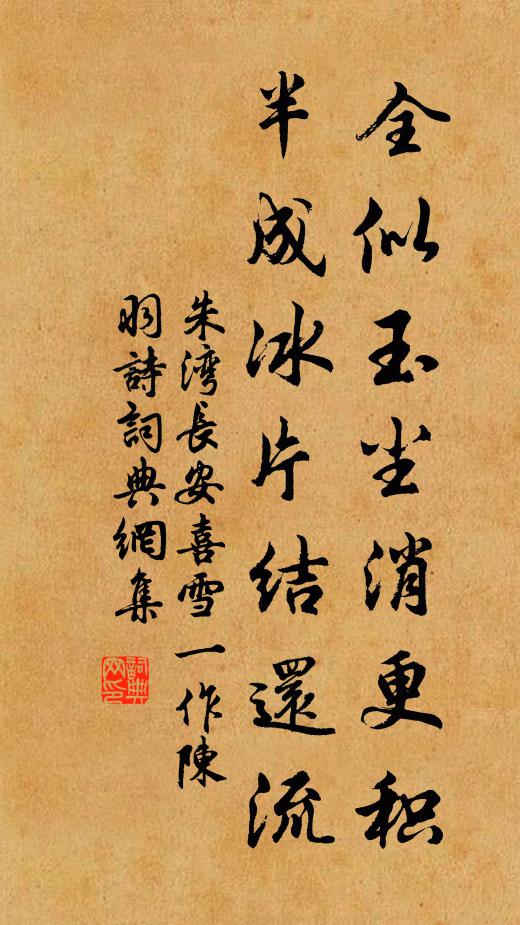 全似玉尘消更积
半成冰片结還流
朱湾長安喜雪一作陳
羽詩詞典網集
詞典网印